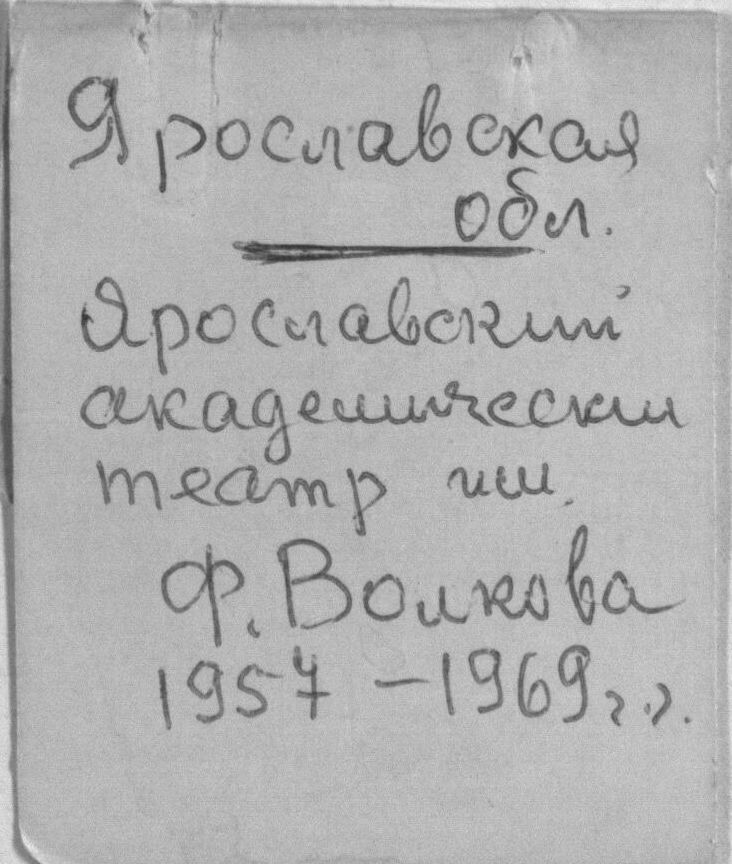 Ярославская
обл.
Ярославский
академически
театр им.
Ф. Волкова
1957 – 1969 г.г.